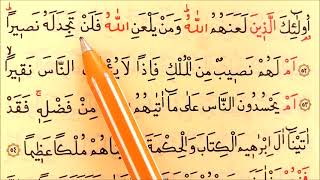 اُولٰٓئِكَ الَّذٖينَ لَعَنَهُمُ اللّٰهُ وَمَنْ يَلْعَنِ اللّٰهُ فَلَنْ تَجِدَ لَهُ نَصٖيراً ﴿٥٢﴾
اَمْ لَهُمْ نَصٖيبٌ مِنَ الْمُلْكِ فَاِذاً لَا النَّاسَ نَقٖيراً ﴿٥٣﴾
اَمْ يَحْسُدُونَ النَّاسَ عَلٰى مَٓا اٰتٰيهُمُ مِنْ فَضْلِهٖ فَقَدْ
اٰتَيْنَٓا اٰلَ اِبْرٰهٖيمَ الْكِتَابَ وَالْحِكْمَةَ مُلْكاً عَظٖيماً ﴿٥٤﴾